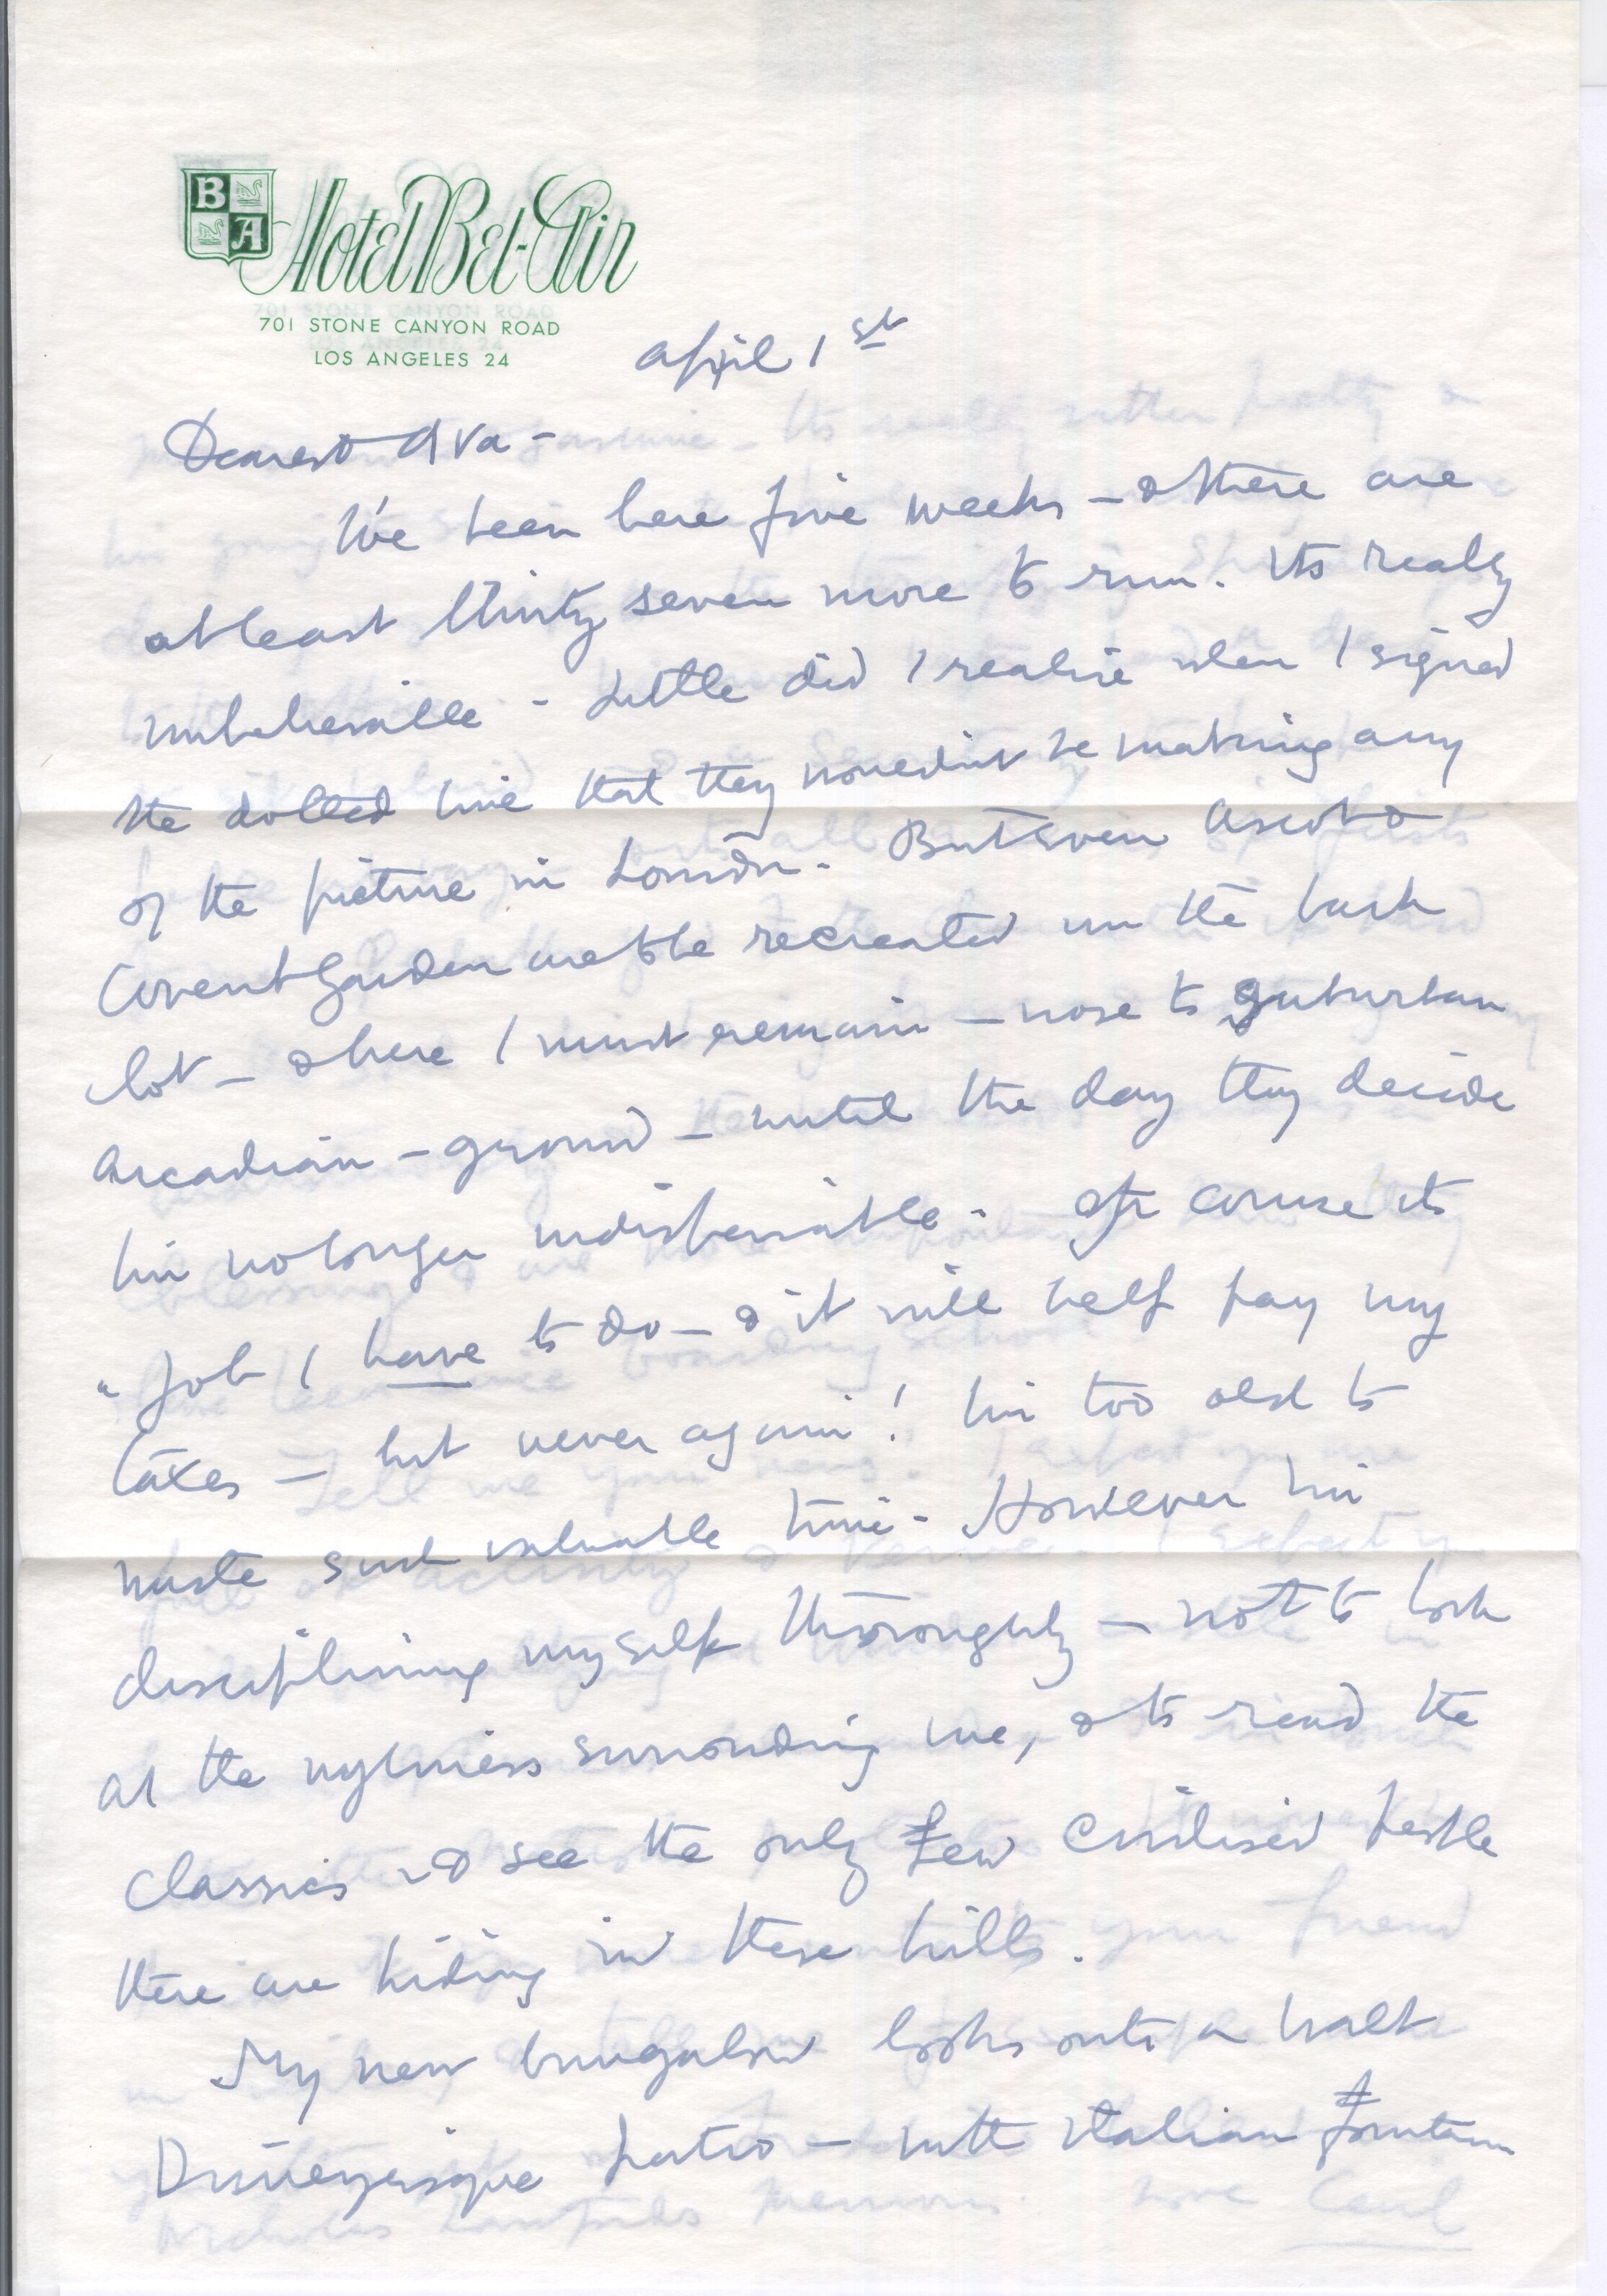 B A Hotel Bel-Air
701 STONE CANYON ROAD
LOS ANGELES 24
April 1st
Dearest Ava -
I've been here five weeks - & there are
at least thirty seven more to run. Its really
unbelievable - Little did I realise when I signed
the dotted line that they wouldnt be making any
of the picture in London. But even Ascot &
Covent Garden are to be recreated on the back
lot - & here I must remain - nose to suburban
Arcadian - ground - until the day they decide
I'm no longer indispensable. Of course its
a job I have to do - & it will help pay my
taxes - but never again! I'm too old to
waste such valuable time. However I'm
disciplining myself thoroughly - not to look
at the uglyness surrounding me, & to read the
classics & see the only few civilised people
there are hiding in these hills.
My new bungalow looks onto a Walt
Disneyesque patio - with Italian fountain